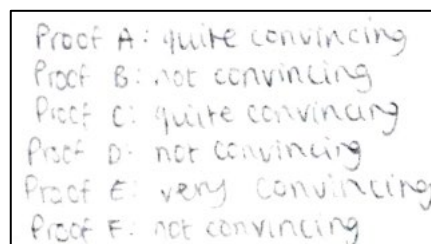 Proof A: quite convincing
Proof B: not convincing
Proof C: quite convincing
Proof D: not convincing
Proof E: very convincing
Proof F: not convincing